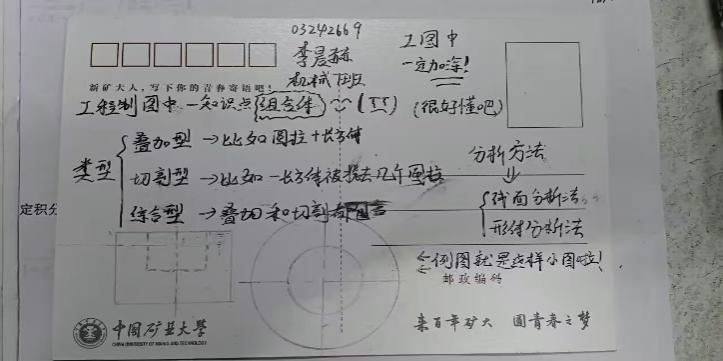 03242669
李晨
机械 班
工图中
一定加深!
新矿大人,写下你的青春寄语吧!
工程制图中一知识点 组合体
(很好懂吧)
类型
叠加型 → 比如圆柱+长方体
切割型 → 比如一长方体被挖去几个圆柱
综合型 → 叠加和切割都
分析方法
线面分析法
形体分析法
← 例图就是这样小图啦!
邮政编码
定积分
中国矿业大学
CHINA UNIVERSITY OF MINING AND TECHNOLOGY
来百年矿大 圆青春之梦